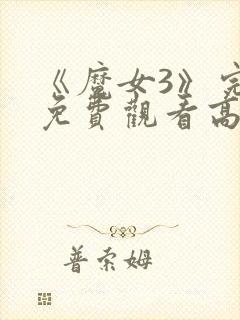 《魔女3》完
免費觀看高
普索姆